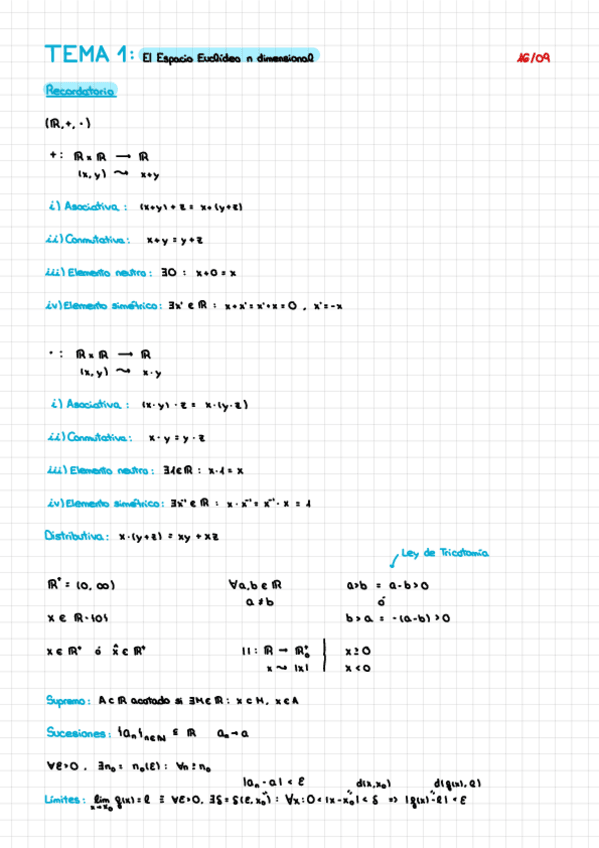 TEMA 1: El Espacio Euclídeo n dimensional 16/09
Recordatorio
(ℝ, +, ·)
+: ℝ x ℝ → ℝ
(x, y) ⤳ x+y
i) Asociativa: (x+y) + z = x+(y+z)
ii) Conmutativa: x+y = y+z
iii) Elemento neutro: ∃0 : x+0 = x
iv) Elemento simétrico: ∃x' ∈ ℝ : x+x' = x'+x = 0 , x' = -x
· : ℝ x ℝ → ℝ
(x, y) ⤳ x·y
i) Asociativa: (x·y) · z = x·(y·z)
ii) Conmutativa: x · y = y · z
iii) Elemento neutro: ∃1∈ℝ : x·1 = x
iv) Elemento simétrico: ∃x⁻¹ ∈ ℝ : x · x⁻¹ = x⁻¹ · x = 1
Distributiva: x·(y+z) = xy + xz
Ley de Tricotomía
ℝ⁺ = (0, ∞) ∀a,b ∈ ℝ a>b = a-b>0
a ≠ b ó
x ∈ ℝ-{0} b>a = -(a-b) >0
x ∈ ℝ⁺ ó ∈ ℝ⁺ | | : ℝ → ℝ₀⁺ x ≥ 0
x ⤳ |x| x < 0
Supremo: A ⊂ ℝ acotado si ∃M∈ℝ : x ≤ M, x∈A
Sucesiones: {aₙ}ₙ∈ℕ ⊆ ℝ aₙ → a
∀ε>0 , ∃n₀ = n₀(ε) : ∀n ≥ n₀
|aₙ - a| < ε d(x,x₀) d(g(x), l)
Límites: lim x→x₀ g(x) = l ≡ ∀ε>0, ∃δ = δ(ε, x₀) : ∀x : 0<|x-x₀| < δ ⇒ |g(x) - l| < ε